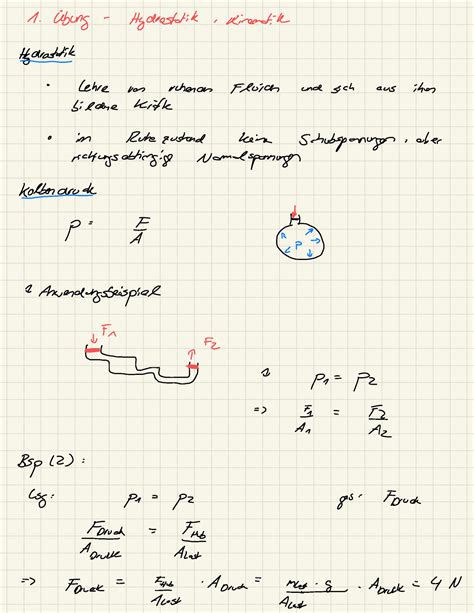 1. Übung - Hydrostatik, Kinematik
Hydrostatik
• Lehre von ruhenden Fluiden und sich aus ihnen
bildene Kräfte
• im Ruhezustand keine Schubspannungen, aber
richtungsabhängige Normalspannungen
Kolbendruck
p = F/A
p
Anwendungsbeispiel
F₁
F₂
p₁ = p₂
=> F₁/A₁ = F₂/A₂
Bsp (2):
Lsg: p₁ = p₂ ges: F_Druck
F_Druck/A_Druck = F_Hub/A_Last
=> F_Druck = F_Hub/A_Last · A_Druck = m_Last · g/A_Last · A_Druck = 4 N